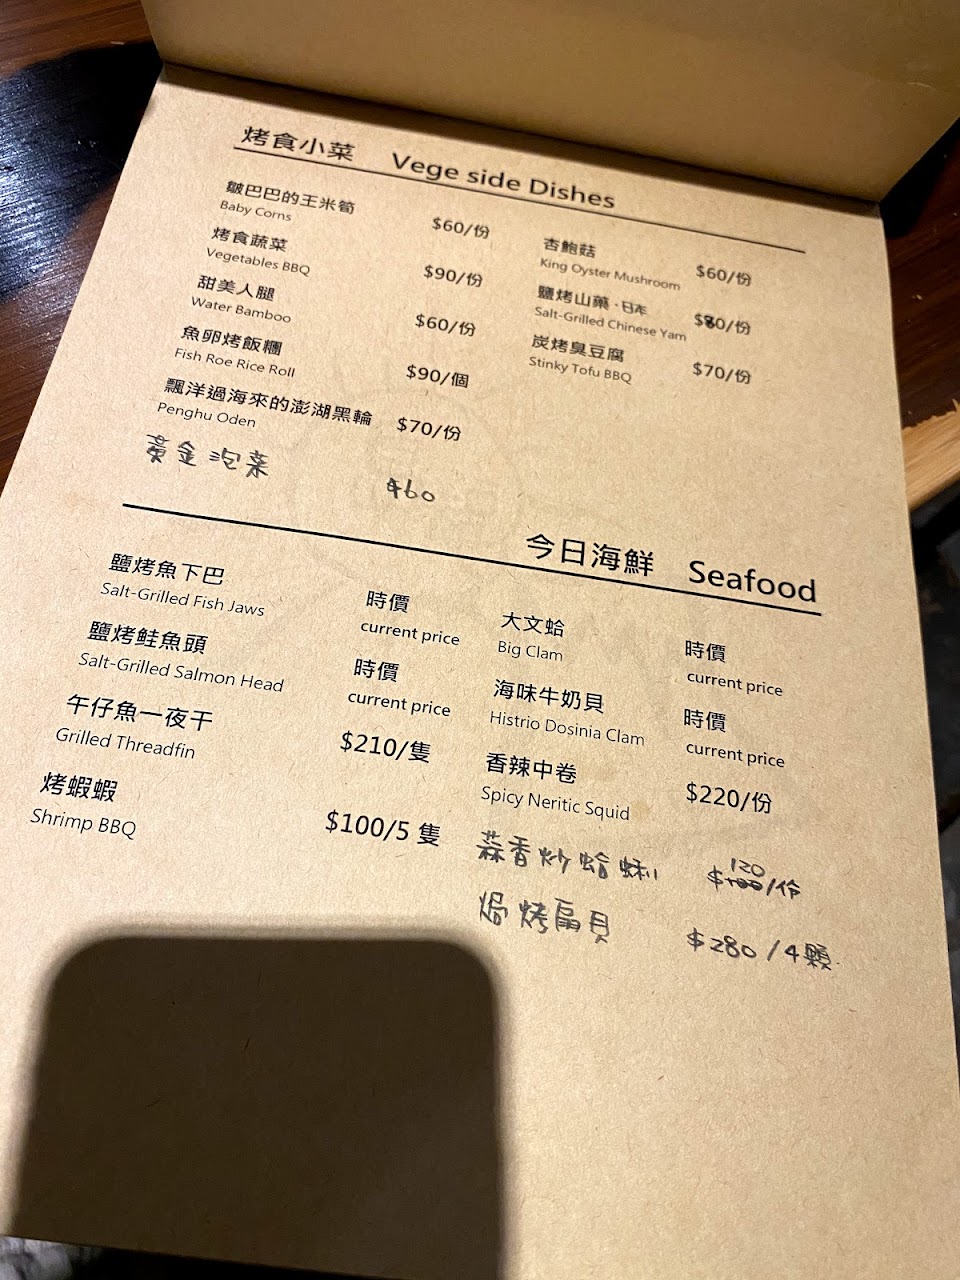 烤食小菜 Vege side Dishes
皺巴巴的玉米筍 $60/份
Baby Corns
烤食蔬菜 $90/份
Vegetables BBQ
甜美人腿 $60/份
Water Bamboo
魚卵烤飯糰 $90/個
Fish Roe Rice Roll
飄洋過海來的澎湖黑輪 $70/份
Penghu Oden
黃金泡菜 $60
杏鮑菇 $60/份
King Oyster Mushroom
鹽烤山藥·日本 $80/份
Salt-Grilled Chinese Yam
炭烤臭豆腐 $70/份
Stinky Tofu BBQ
今日海鮮 Seafood
鹽烤魚下巴 時價
Salt-Grilled Fish Jaws current price
鹽烤鮭魚頭 時價
Salt-Grilled Salmon Head current price
午仔魚一夜干 $210/隻
Grilled Threadfin
烤蝦蝦 $100/5 隻
Shrimp BBQ
大文蛤 時價
Big Clam current price
海味牛奶貝 時價
Histrio Dosinia Clam current price
香辣中卷 $220/份
Spicy Neritic Squid
120
蒜香炒蛤蜊 $100/份
焗烤扇貝 $280/4顆